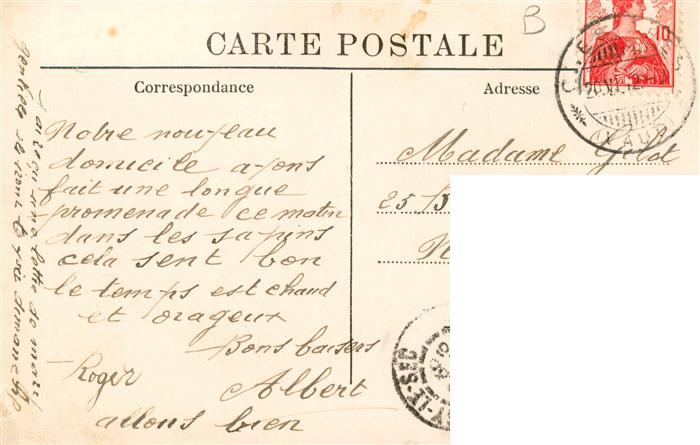 B
CARTE POSTALE
Correspondance
Adresse
10
20.VI.12
(VAUD)
Notre nouveau
domicile avons
fait une longue
promenade ce matin
dans les sapins
cela sent bon
le temps est chaud
et orageux
Bons baisers
Roger Albert
allons bien
J'ai reçu une lettre de
dimanche
Madame Gilot
25
Y-LE-SEC